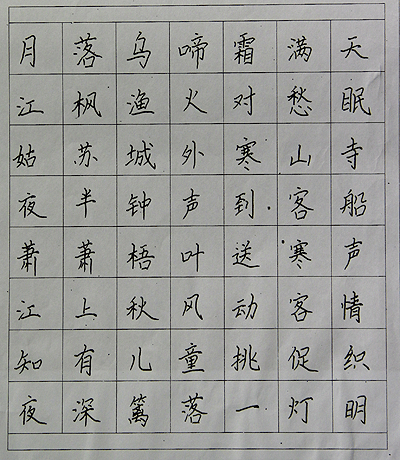 月落乌啼霜满天
江枫渔火对愁眠
姑苏城外寒山寺
夜半钟声到客船
萧萧梧叶送寒声
江上秋风动客情
知有儿童挑促织
夜深篱落一灯明